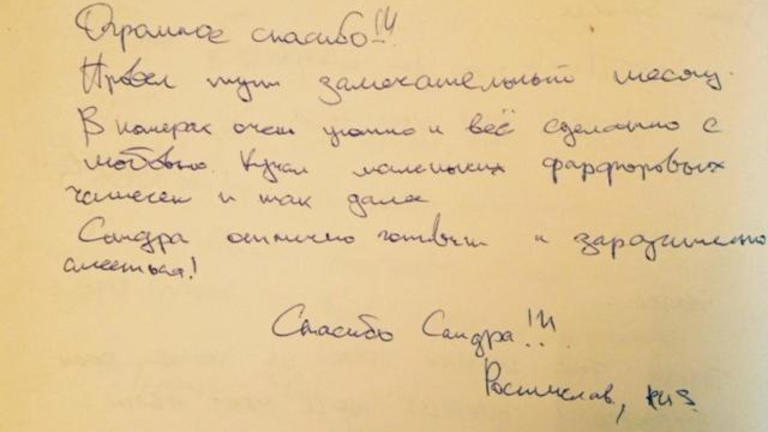 Огромное спасибо!!!
Провел тут замечательный месяц.
В номерах очень уютно и всё сделанно с
любовью. Кучал маленьких фарфоровых
чашечек и так далее
Сандра отлично готовит и заразительно
смееться!
Спасибо Сандра!!!
Ростислав,